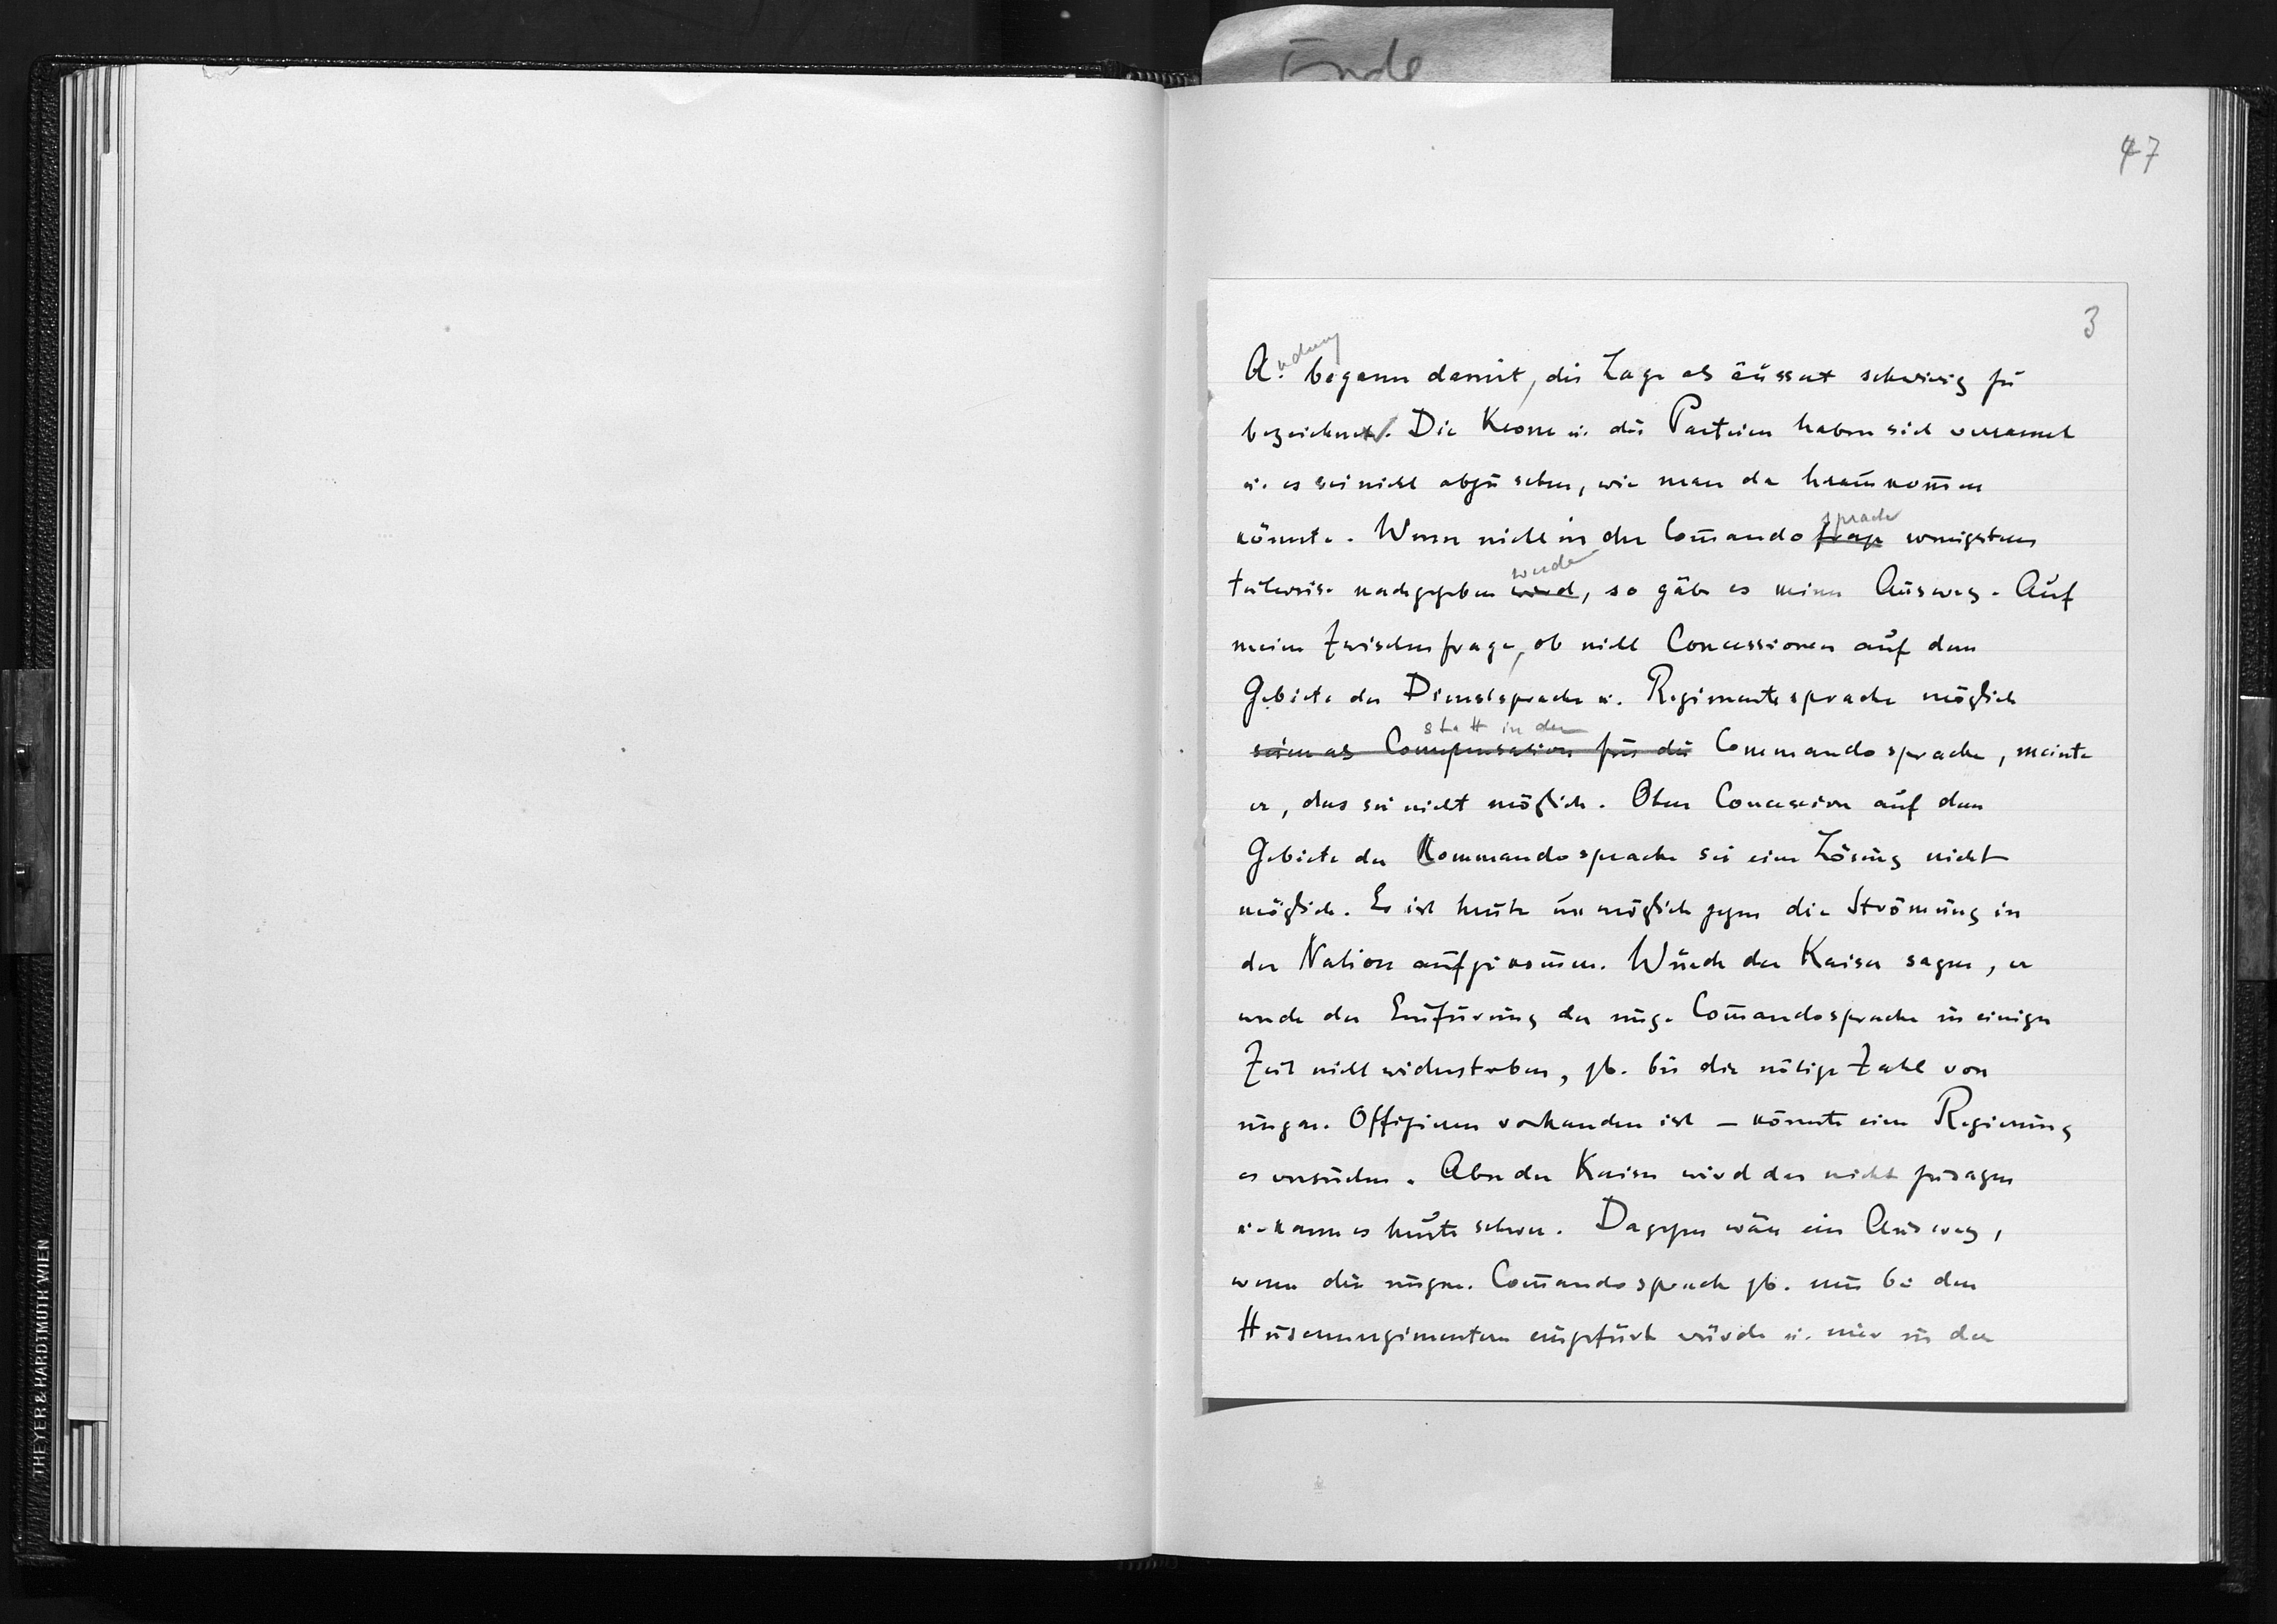 Ende
47
3
A.ndrassy begann damit, die Lage als äusserst schwierig zu
bezeichnen. Die Krone u. die Parteien haben sich verrannt
u. es sei nicht abzusehen, wie man da herauskom̄en
könnte. Wenn nicht in der Com̄andofrage sprache wenigstens
teilweise nachgegeben wird werde, so gäbe es keinen Ausweg. Auf
meine Zwischenfrage, ob nicht Concessionen auf dem
Gebiete der Dienstsprache u. Regimentssprache möglich
seien als Compensation für die statt in der Commandosprache, meinte
er, das sei nicht möglich. Ohne Concession auf dem
Gebiete der Kommandosprache sei eine Lösung nicht
möglich. Es ist heute unmöglich gegen die Strömung in
der Nation aufzukom̄en. Würde der Kaiser sagen, er
werde der Einfürung der ung. Com̄andosprache in einiger
Zeit nicht widerstreben, zb. bis die nötige Zahl von
ungar. Offizieren vorhanden ist – könnte eine Regierung
es versuchen. Aber der Kaiser wird das nicht zusagen
u. kann es heute schwer. Dagegen wäre ein Ausweg,
wenn die ungar. Com̄andosprache zb. nur bei den
Husarenregimentern eingefürt würde u. nur in der
THEYER & HARDTMUTH WIEN